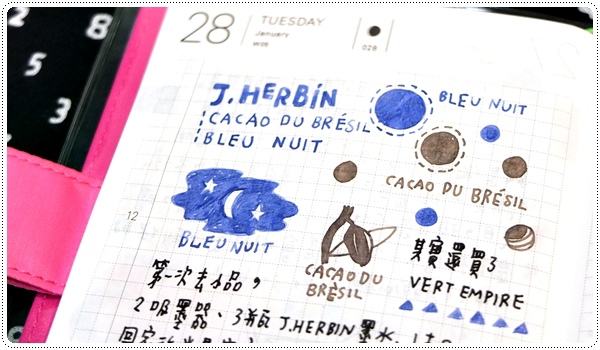 2 8
5
3
28 TUESDAY
January
W05
028
J.HERBIN
CACAO DU BRÉSIL
BLEU NUIT
BLEU NUIT
CACAO DU BRÉSIL
12
BLEU NUIT
CACAO DU
BRÉSIL
其實還買3
VERT EMPIRE
第一次去小品,
2 吸墨器、3瓶 J.HERBIN 墨水,